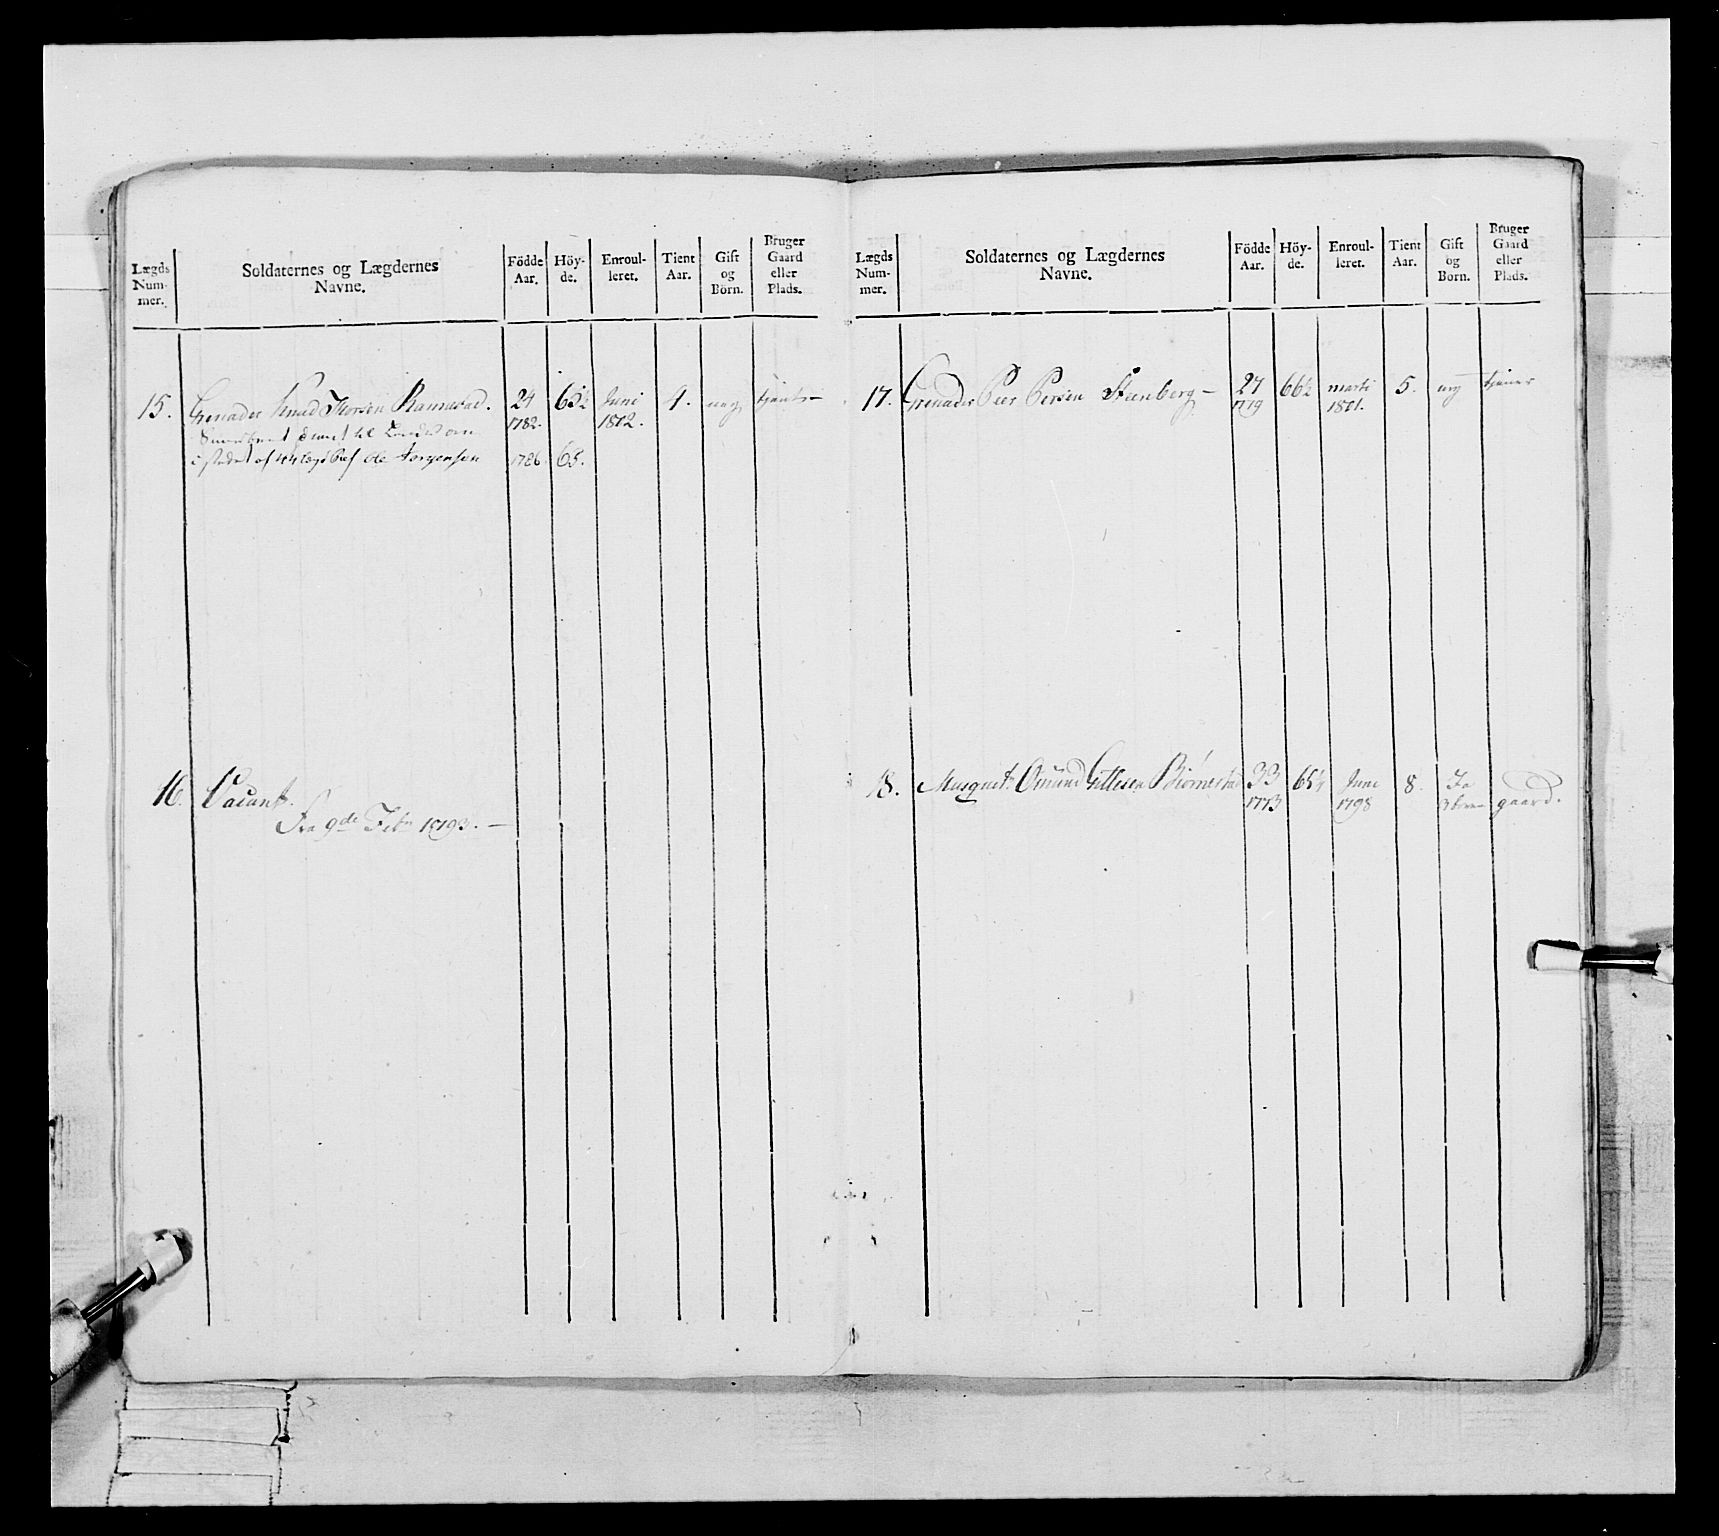 Lægds Num- mer. Soldaternes og Lægdernes Navne. Födde Aar. Höy- de. Enroul- leret. Tient Aar. Gift og Börn. Bruger Gaard eller Plads.
15. Grenader Knud Thorsen Ramestad. 24 1782. 63½ Juni 1802. 4. ney tjener
til
i stedet af 44 lægd Ole Torgersen 1786 65.
16. Vacant.
Fra 9de Febr 1793.
Lægds Num- mer. Soldaternes og Lægdernes Navne. Födde Aar. Höy- de. Enroul- leret. Tient Aar. Gift og Born. Bruger Gaard eller Plads.
17. Grenader Peer Persen Steenberg 27 1779 66½ marti 1801. 5. ney tjener
18. Musquet: Omund Gittlesen Biørnestad 33 1773 65½ Juni 1798 8. Ja 3 børn gaard.